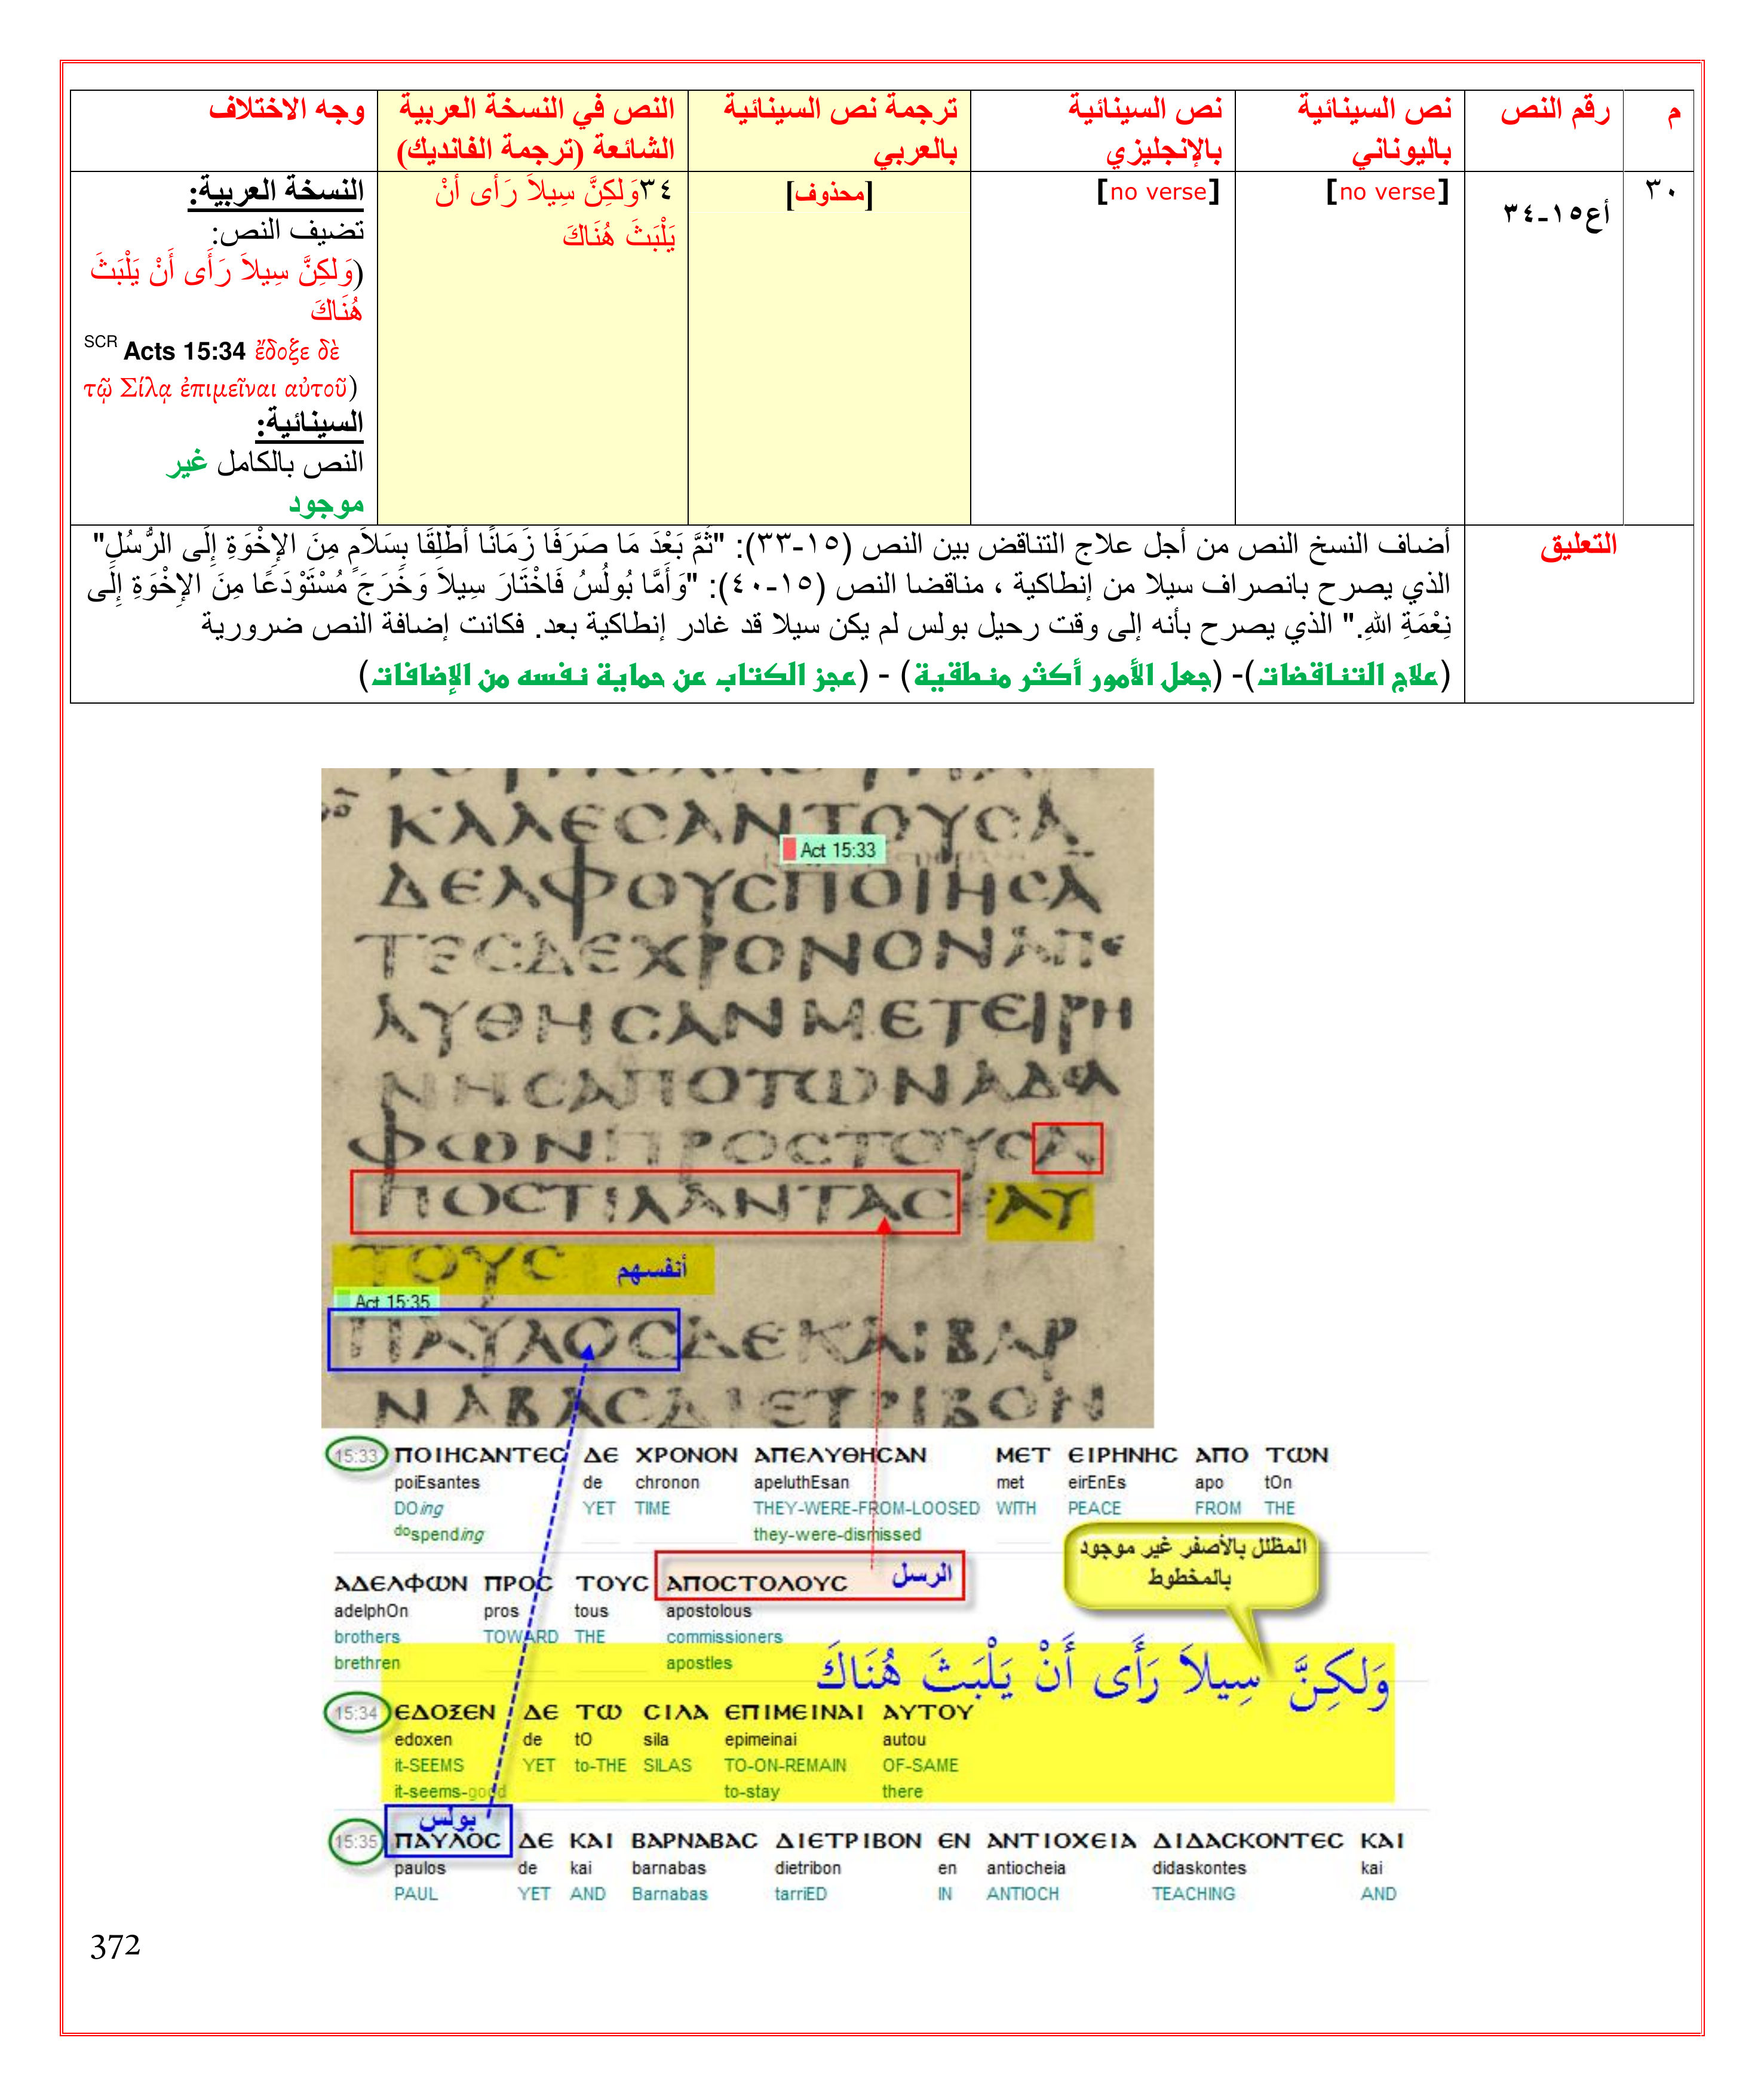 م
رقم النص
نص السينائية باليوناني
نص السينائية بالإنجليزي
ترجمة نص السينائية بالعربي
النص في النسخة العربية الشائعة (ترجمة الفانديك)
وجه الاختلاف
٣٠
أع١٥-٣٤
[no verse]
[no verse]
[محذوف]
٣٤وَلكِنَّ سِيلاَ رَأَى أَنْ
يَلْبَثَ هُنَاكَ
النسخة العربية:
تضيف النص:
(وَلكِنَّ سِيلاَ رَأَى أَنْ يَلْبَثَ
هُنَاكَ
SCR Acts 15:34 ἔδοξε δὲ
τῷ Σίλᾳ ἐπιμεῖναι αὐτοῦ)
السينائية:
النص بالكامل غير
موجود
التعليق
أضاف النسخ النص من أجل علاج التناقض بين النص (١٥-٣٣): "ثُمَّ بَعْدَ مَا صَرَفَا زَمَانًا أُطْلِقَا بِسَلاَمٍ مِنَ الإِخْوَةِ إِلَى الرُّسُلِ"
الذي يصرح بانصراف سيلا من إنطاكية ، مناقضا النص (١٥-٤٠): "وَأَمَّا بُولُسُ فَاخْتَارَ سِيلاَ وَخَرَجَ مُسْتَوْدَعًا مِنَ الإِخْوَةِ إِلَى
نِعْمَةِ اللهِ." الذي يصرح بأنه إلى وقت رحيل بولس لم يكن سيلا قد غادر إنطاكية بعد. فكانت إضافة النص ضرورية
(علاج التناقضات)- (جعل الأمور أكثر منطقية) - (عجز الكتاب عن حماية نفسه من الإضافات)
ΚΑΛΕCΑΝΤΟΥCΑ
Act 15:33
ΔΕΛΦΟΥCΠΟΙΗCΑ
ΤΕCΔΕΧΡΟΝΟΝΑΠΕ
ΛΥΘΗCΑΝΜΕΤΕΙΡΗ
ΝΗCΑΠΟΤΩΝΑΔΕΛ
ΦΩΝΠΡΟCΤΟΥCΑ
ΠΟCΤΙΛΑΝΤΑC ΑΥ
ΤΟΥC أنفسهم
Act 15:35
ΠΑΥΛΟCΔΕΚΑΙΒΑΡ
ΝΑΒΑCΔΙΕΤΡΙΒΟΝ
15:33 ΠΟΙΗCΑΝΤΕC ΔΕ ΧΡΟΝΟΝ ΑΠΕΛΥΘΗCΑΝ ΜΕΤ ΕΙΡΗΝΗC ΑΠΟ ΤΩΝ
poiEsantes de chronon apeluthEsan met eirEnEs apo tOn
DOing YET TIME THEY-WERE-FROM-LOOSED WITH PEACE FROM THE
dospending they-were-dismissed
المظلل بالأصفر غير موجود
بالمخطوط
ΑΔΕΛΦΩΝ ΠΡΟC ΤΟΥC ΑΠΟCΤΟΛΟΥC الرسل
adelphOn pros tous apostolous
brothers TOWARD THE commissioners
brethren apostles
وَلكِنَّ سِيلاَ رَأَى أَنْ يَلْبَثَ هُنَاكَ
15:34 ΕΔΟΞΕΝ ΔΕ ΤΩ CΙΛΑ ΕΠΙΜΕΙΝΑΙ ΑΥΤΟΥ
edoxen de tO sila epimeinai autou
it-SEEMS YET to-THE SILAS TO-ON-REMAIN OF-SAME
it-seems-good to-stay there
بولس
15:35 ΠΑΥΛΟC ΔΕ ΚΑΙ ΒΑΡΝΑΒΑC ΔΙΕΤΡΙΒΟΝ ΕΝ ΑΝΤΙΟΧΕΙΑ ΔΙΔΑCΚΟΝΤΕC ΚΑΙ
paulos de kai barnabas dietribon en antiocheia didaskontes kai
PAUL YET AND Barnabas tarriED IN ANTIOCH TEACHING AND
372